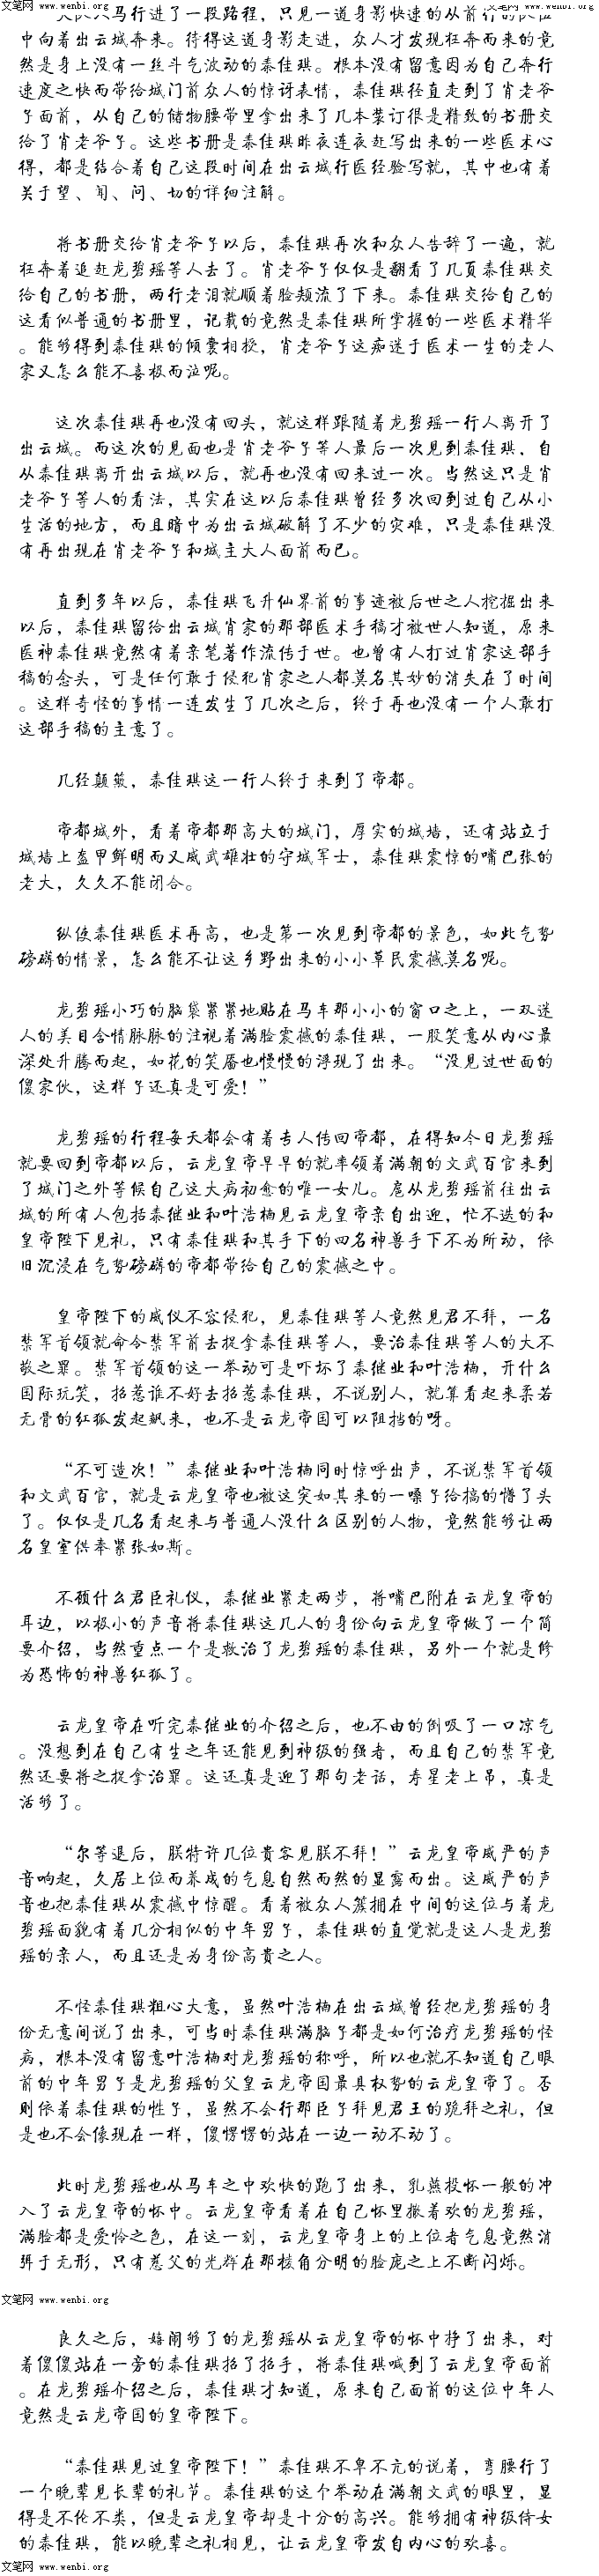 文笔网 www.wenbi.org
文笔网 www.wenbi.org
大队人马行进了一段路程，只见一道身影快速的从前行的队伍
中向着出云城奔来。待得这道身影走进，众人才发现狂奔而来的竟
然是身上没有一丝斗气波动的秦佳琪。根本没有留意因为自己奔行
速度之快而带给城门前众人的惊讶表情，秦佳琪径直走到了肖老爷
子面前，从自己的储物腰带里拿出来了几本装订很是精致的书册交
给了肖老爷子。这些书册是秦佳琪昨夜连夜赶写出来的一些医术心
得，都是结合着自己这段时间在出云城行医经验写就，其中也有着
关于望、闻、问、切的详细注解。
将书册交给肖老爷子以后，秦佳琪再次和众人告辞了一遍，就
狂奔着追赶龙碧瑶等人去了。肖老爷子仅仅是翻看了几页秦佳琪交
给自己的书册，两行老泪就顺着脸颊流了下来。秦佳琪交给自己的
这看似普通的书册里，记载的竟然是秦佳琪所掌握的一些医术精华
。能够得到秦佳琪的倾囊相授，肖老爷子这痴迷于医术一生的老人
家又怎么能不喜极而泣呢。
这次秦佳琪再也没有回头，就这样跟随着龙碧瑶一行人离开了
出云城。而这次的见面也是肖老爷子等人最后一次见到秦佳琪，自
从秦佳琪离开出云城以后，就再也没有回来过一次。当然这只是肖
老爷子等人的看法，其实在这以后秦佳琪曾经多次回到过自己从小
生活的地方，而且暗中为出云城破解了不少的灾难，只是秦佳琪没
有再出现在肖老爷子和城主大人面前而已。
直到多年以后，秦佳琪飞升仙界前的事迹被后世之人挖掘出来
以后，秦佳琪留给出云城肖家的那部医术手稿才被世人知道，原来
医神秦佳琪竟然有着亲笔著作流传于世。也曾有人打过肖家这部手
稿的念头，可是任何敢于侵犯肖家之人都莫名其妙的消失在了时间
。这样奇怪的事情一连发生了几次之后，终于再也没有一个人敢打
这部手稿的主意了。
几经颠簸，秦佳琪这一行人终于来到了帝都。
帝都城外，看着帝都那高大的城门，厚实的城墙，还有站立于
城墙上盔甲鲜明而又威武雄壮的守城军士，秦佳琪震惊的嘴巴张的
老大，久久不能闭合。
纵使秦佳琪医术再高，也是第一次见到帝都的景色，如此气势
磅礴的情景，怎么能不让这乡野出来的小小草民震撼莫名呢。
龙碧瑶小巧的脑袋紧紧地贴在马车那小小的窗口之上，一双迷
人的美目含情脉脉的注视着满脸震撼的秦佳琪，一股笑意从内心最
深处升腾而起，如花的笑靥也慢慢的浮现了出来。“没见过世面的
傻家伙，这样子还真是可爱！”
龙碧瑶的行程每天都会有着专人传回帝都，在得知今日龙碧瑶
就要回到帝都以后，云龙皇帝早早的就率领着满朝的文武百官来到
了城门之外等候自己这大病初愈的唯一女儿。扈从龙碧瑶前往出云
城的所有人包括秦继业和叶浩楠见云龙皇帝亲自出迎，忙不迭的和
皇帝陛下见礼，只有秦佳琪和其手下的四名神兽手下不为所动，依
旧沉浸在气势磅礴的帝都带给自己的震撼之中。
皇帝陛下的威仪不容侵犯，见秦佳琪等人竟然见君不拜，一名
禁军首领就命令禁军前去捉拿秦佳琪等人，要治秦佳琪等人的大不
敬之罪。禁军首领的这一举动可是吓坏了秦继业和叶浩楠，开什么
国际玩笑，招惹谁不好去招惹秦佳琪，不说别人，就算看起来柔若
无骨的红狐发起飙来，也不是云龙帝国可以阻挡的呀。
“不可造次！”秦继业和叶浩楠同时惊呼出声，不说禁军首领
和文武百官，就是云龙皇帝也被这突如其来的一嗓子给搞的懵了头
了。仅仅是几名看起来与普通人没什么区别的人物，竟然能够让两
名皇室供奉紧张如斯。
不顾什么君臣礼仪，秦继业紧走两步，将嘴巴附在云龙皇帝的
耳边，以极小的声音将秦佳琪这几人的身份向云龙皇帝做了一个简
要介绍，当然重点一个是救治了龙碧瑶的秦佳琪，另外一个就是修
为恐怖的神兽红狐了。
云龙皇帝在听完秦继业的介绍之后，也不由的倒吸了一口凉气
。没想到在自己有生之年还能见到神级的强者，而且自己的禁军竟
然还要将之捉拿治罪。这还真是迎了那句老话，寿星老上吊，真是
活够了。
“尔等退后，朕特许几位贵客见朕不拜！”云龙皇帝威严的声
音响起，久居上位而养成的气息自然而然的显露而出。这威严的声
音也把秦佳琪从震撼中惊醒。看着被众人簇拥在中间的这位与着龙
碧瑶面貌有着几分相似的中年男子，秦佳琪的直觉就是这人是龙碧
瑶的亲人，而且还是为身份高贵之人。
不怪秦佳琪粗心大意，虽然叶浩楠在出云城曾经把龙碧瑶的身
份无意间说了出来，可当时秦佳琪满脑子都是如何治疗龙碧瑶的怪
病，根本没有留意叶浩楠对龙碧瑶的称呼，所以也就不知道自己眼
前的中年男子是龙碧瑶的父皇云龙帝国最具权势的云龙皇帝了。否
则依着秦佳琪的性子，虽然不会行那臣子拜见君王的跪拜之礼，但
是也不会像现在一样，傻愣愣的站在一边一动不动了。
此时龙碧瑶也从马车之中欢快的跑了出来，乳燕投怀一般的冲
入了云龙皇帝的怀中。云龙皇帝看着在自己怀里撒着欢的龙碧瑶，
满脸都是爱怜之色，在这一刻，云龙皇帝身上的上位者气息竟然消
弭于无形，只有慈父的光辉在那棱角分明的脸庞之上不断闪烁。
文笔网 www.wenbi.org
良久之后，嬉闹够了的龙碧瑶从云龙皇帝的怀中挣了出来，对
着傻傻站在一旁的秦佳琪招了招手，将秦佳琪喊到了云龙皇帝面前
。在龙碧瑶介绍之后，秦佳琪才知道，原来自己面前的这位中年人
竟然是云龙帝国的皇帝陛下。
“秦佳琪见过皇帝陛下！”秦佳琪不卑不亢的说着，弯腰行了
一个晚辈见长辈的礼节。秦佳琪的这个举动在满朝文武的眼里，显
得是不伦不类，但是云龙皇帝却是十分的高兴。能够拥有神级侍女
的秦佳琪，能以晚辈之礼相见，让云龙皇帝发自内心的欢喜。
文笔网 www.wenbi.org